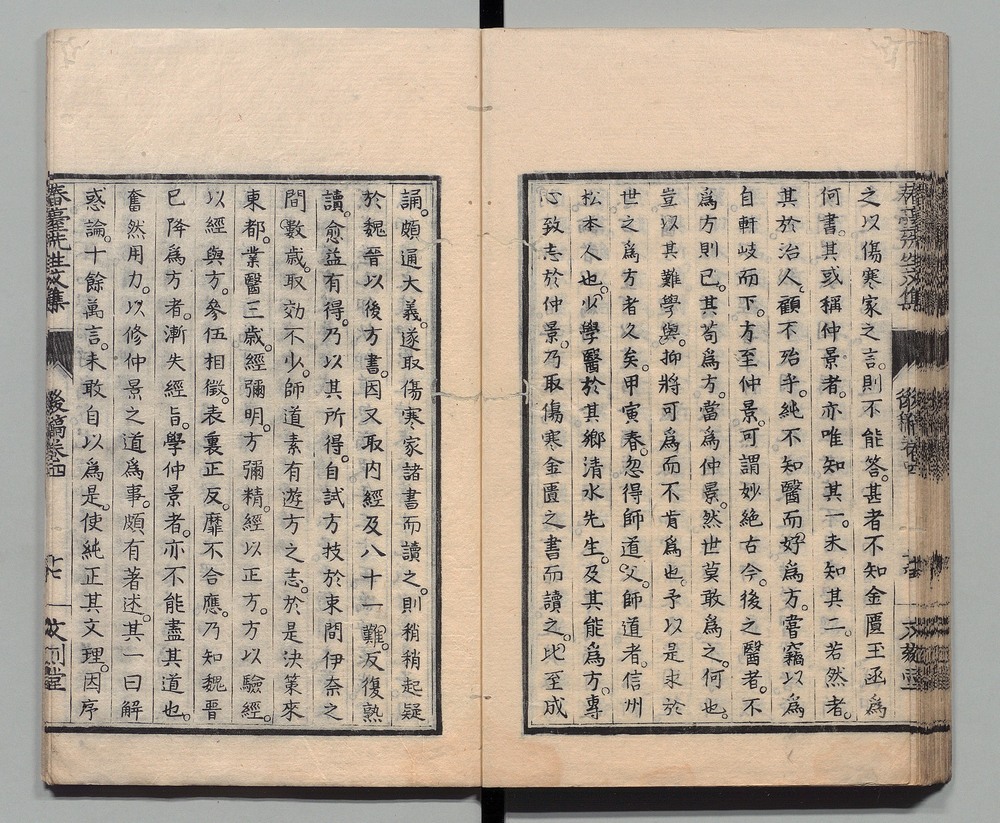 之以傷寒家之言。則不能答。甚者不知金匱玉函爲
何書。其或稱仲景者。亦唯知其一。未知其二。若然者。
其於治人。顧不殆乎。純不知醫而好爲方。嘗竊以爲
自軒岐而下。方至仲景。可謂妙絕古今。後之醫者。不
爲方則已。其苟爲方。當爲仲景。然世莫敢爲之。何也。
豈以其難學與。抑將可爲而不肯爲也。予以是求於
世之爲方者久矣。甲寅春。忽得師道父。師道者。信州
松本人也。少學醫於其鄉清水先生。及其能爲方。專
心致志於仲景。乃取傷寒金匱之書而讀之。比至成
誦。頗通大義。遂取傷寒家諸書而讀之。則稍稍起疑
於魏晉以後方書。因又取內經及八十一難。反復熟
讀。愈益有得。乃以其所得。自試方技於東間伊奈之
間。數歲。取效不少。師道素有遊方之志。於是決策來
東都。業醫三歲。經彌明。方彌精。經以正方。方以驗經。
以經與方。參伍相徵。表裏正反。靡不合應。乃知魏晉
已降爲方者。漸失經旨。學仲景者。亦不能盡其道也。
奮然用力。以修仲景之道爲事。頗有著述。其一曰解
惑論。十餘萬言。未敢自以爲是。使純正其文理。因序
春臺先生文集 後稿卷四